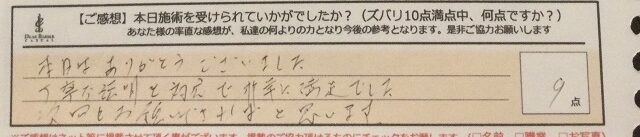 【ご感想】本日施術を受けられていかがでしたか？（ズバリ10点満点中、何点ですか？）
あなた様の率直な感想が、私達の何よりの力となり今後の参考となります。是非ご協力お願いします
本日はありがとうございました
丁寧な説明と対応で非常に満足でした
次回もお願いできればと思います。
9点